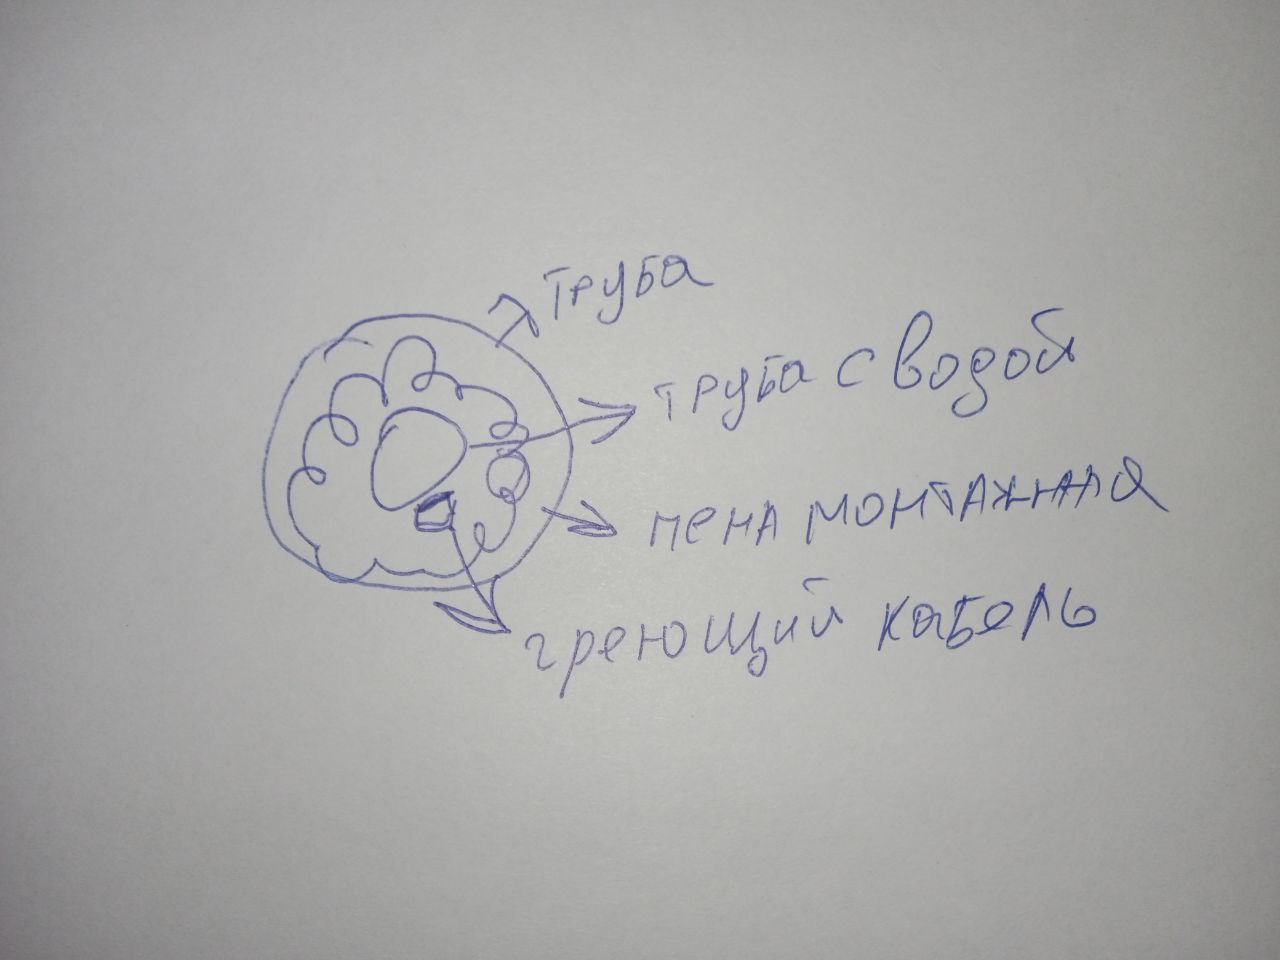 труба
труба с водой
пена монтажная
греющий кабель